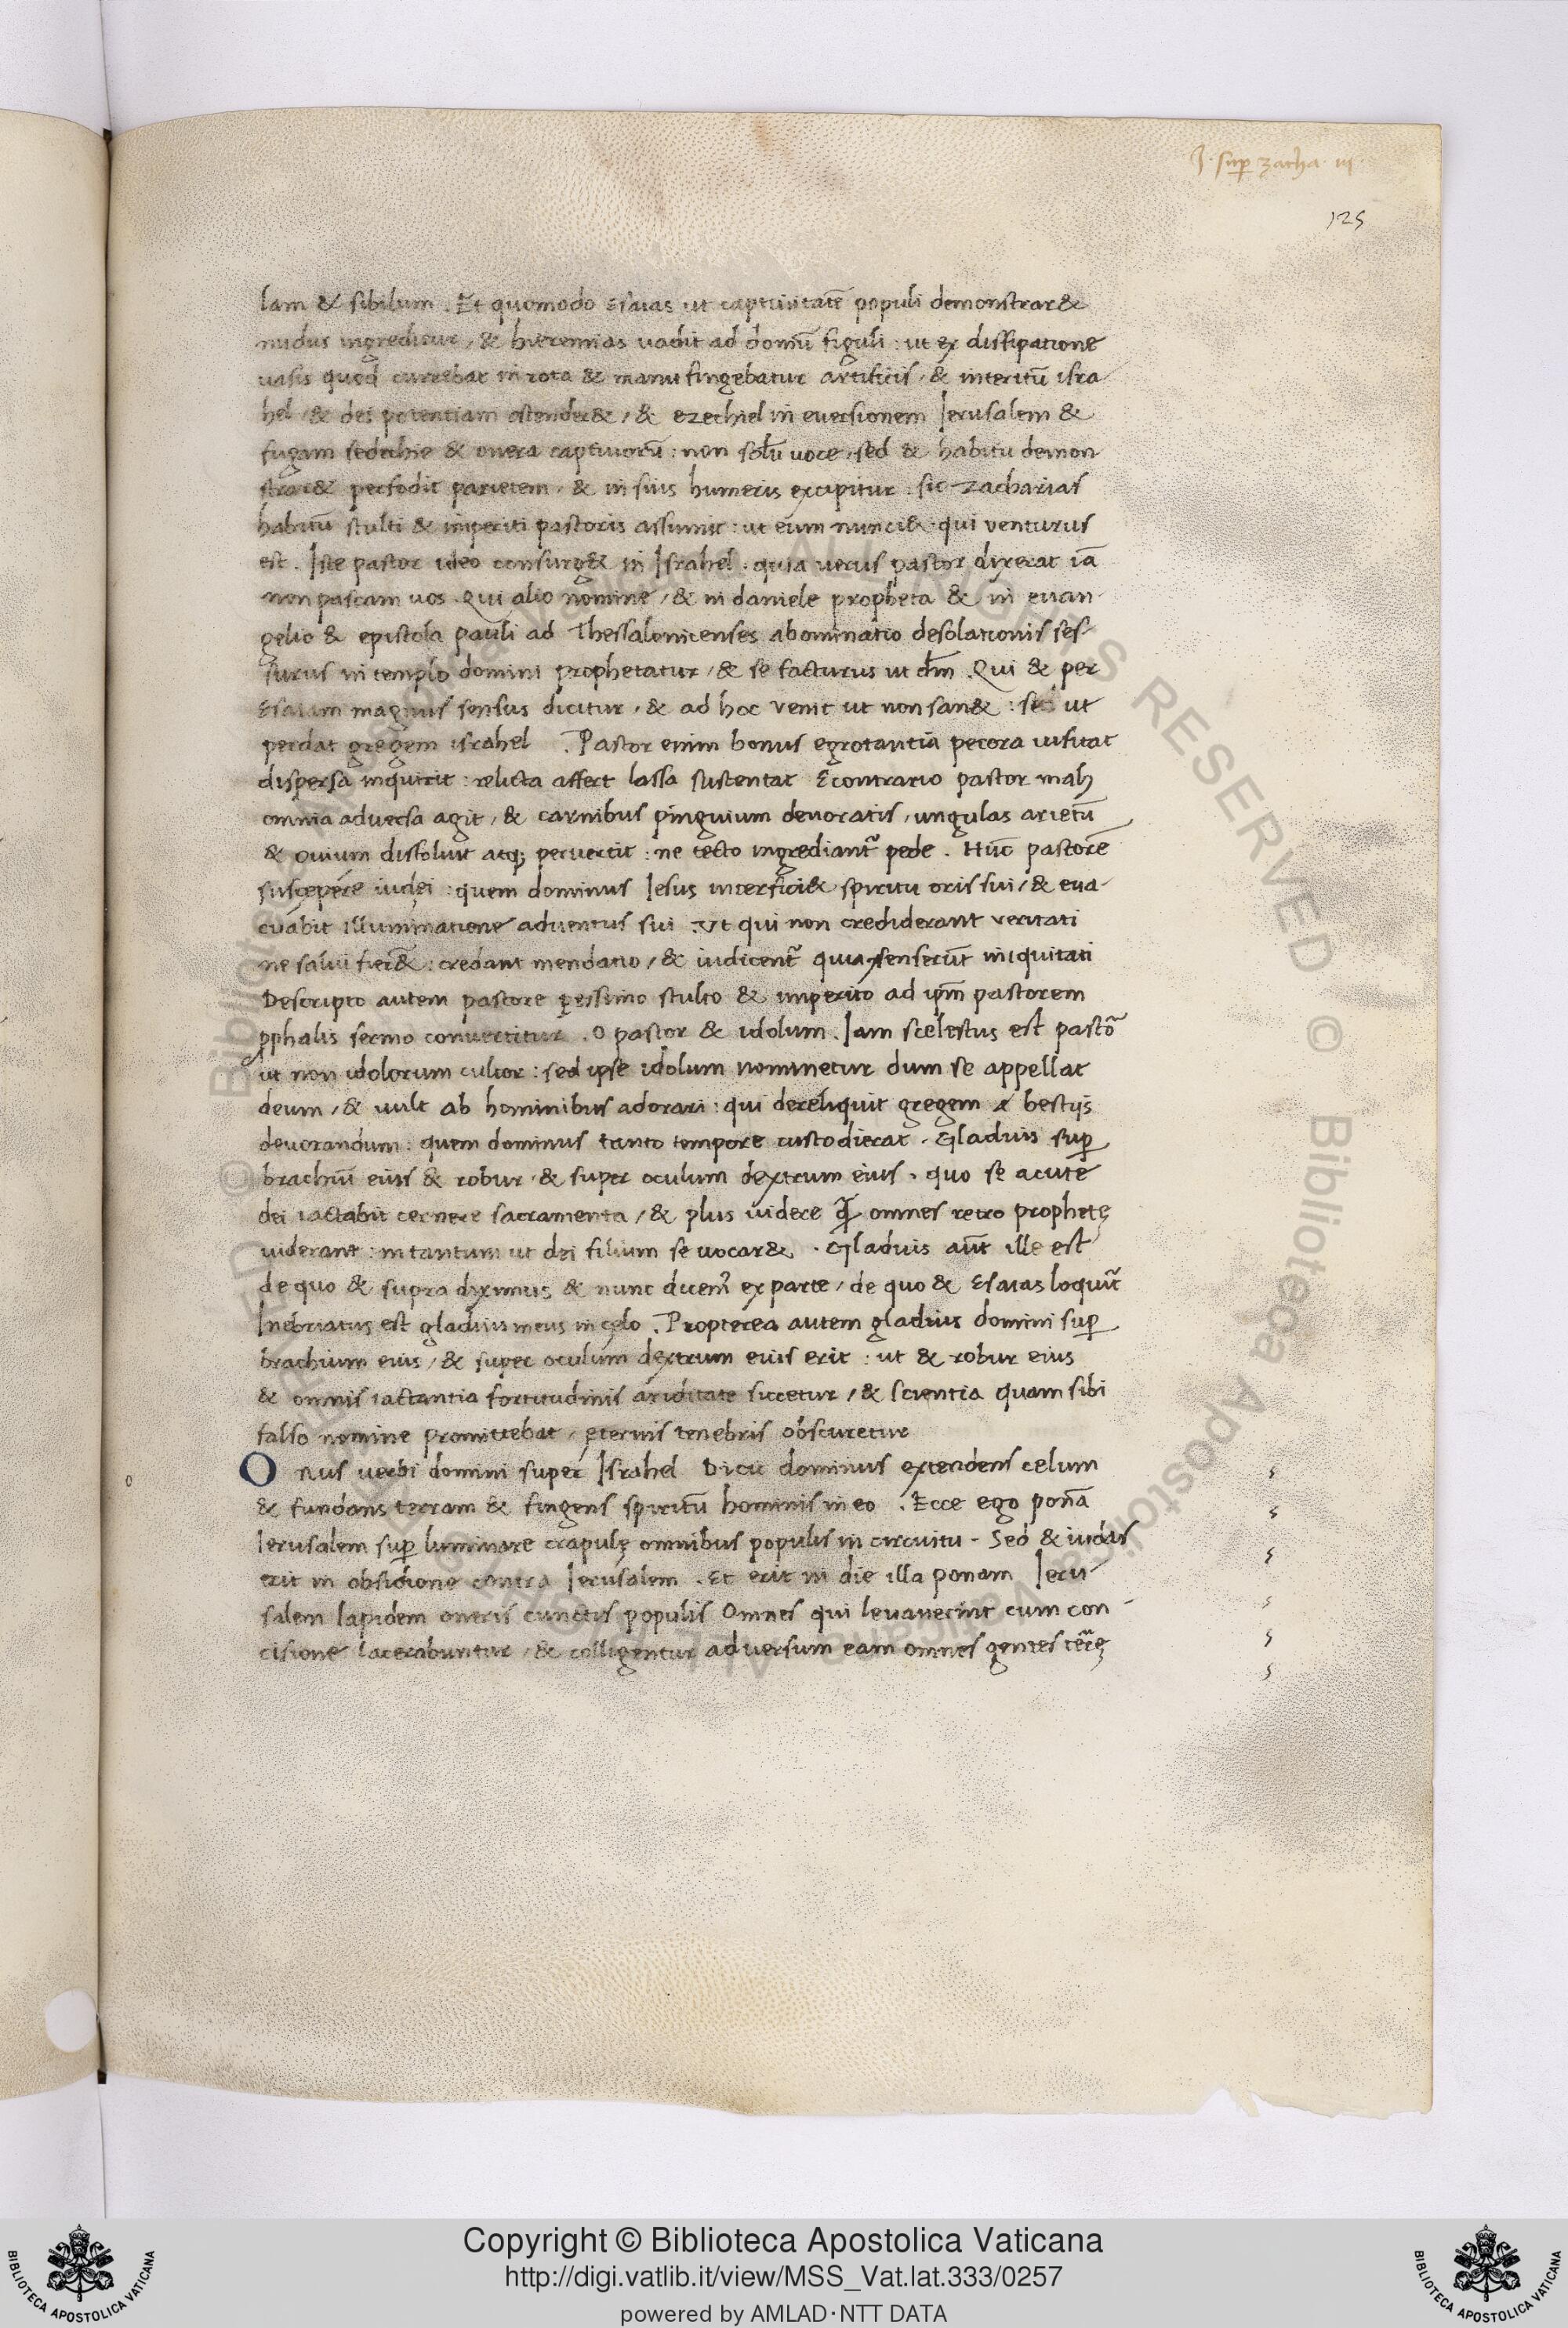 J. sup zacha. iij.
125
lam & sibilum . Et quomodo Esaias ut captiuitatē populi demonstrar&
nudus ingreditur / & hieremias uadit ad domū figuli : ut ex dissipatione
uasis quod currebat in rota & manu fingebatur artificis / & interitū isra
hel / & dei potentiam ostender& / & ezechiel in euersionem Ierusalem &
fugam sedechie & onera captiuorū : non solū uoce / sed & habitu demon
strar& perfodit parietem / & in suis humeris excipitur : sic zacharias
habitū stulti & imperiti pastoris assumit : ut eum nunci& qui venturus
est . Iste pastor ideo consurg& in Israhel . quia verus pastor dixerat iā
non pascam uos . Qui alio nomine / & in daniele propheta & in euan-
gelio & epistola pauli ad Thessalonicenses abominatio desolationis ses-
surus in templo domini prophetatur / & se facturus ut dm̄ . Qui & per
Esaiam magnus sensus dicitur / & ad hoc venit ut non san& : sed ut
perdat gregem israhel . Pastor enim bonus egrotantia pecora uisitat
dispersa inquirit : relicta affert lassa sustentat Econtrario pastor malꝰ
omnia aduersa agit / & carnibus pinguium deuoratis / ungulas arietū
& ouium dissoluit atq; peruertit : ne recto ingrediantᷣ pede . Hūc pastorē
suscepere iudei : quem dominus Iesus interfici& spiritu oris sui / & eua-
cuabit illuminatione aduentus sui . Ut qui non crediderant veritati
ne salui fier& : credant mendatio / & iudicentᷣ quia senserūt iniquitati
Descripto autem pastore pessimo stulto & imperito ad ipm̄ pastorem
pphalis sermo conuertitur . O pastor & idolum . Iam scelestus est pastō
ut non idolorum cultor : sed ipse idolum nominetur dum se appellat
deum / & uult ab hominibus adorari : qui dereliquit gregem a bestijs
deuorandum : quem dominus tanto tempore custodierat . Gladius sup
brachiū eius & robur / & super oculum dextrum eius . quo se acute
dei iactabit cernere sacramenta / & plus uidere q̄ omnes retro prophetę
uiderant : in tantum ut dei filium se uocar& . Gladius aūt ille est
de quo & supra diximus & nunc dicemꝰ ex parte / de quo & Esaias loquitᷣ
Inebriatus est gladius meus in cęlo . Propterea autem gladius domini sup
brachium eius / & super oculum dextrum eius erit : ut & robur eius
& omnis iactantia fortitudinis ariditate siccetur / & scientia quam sibi
falso nomine promittebat / ęternis tenebris obscuretur
O nus uerbi domini super Israhel Dicit dominus extendens celum
& fundans terram & fingens spiritū hominis in eo . Ecce ego ponā
Ierusalem sup luminare crapulę omnibus populis in circuitu - Sed & iudas
erit in obsidione contra Ierusalem . Et erit in die illa ponam Ieru-
salem lapidem oneris cunctis populis Omnes qui leuauerint cum con-
cisione lacerabuntur / & colligentur aduersum eam omnes gentes terrę
o
Copyright © Biblioteca Apostolica Vaticana
http://digi.vatlib.it/view/MSS_Vat.lat.333/0257
powered by AMLAD·NTT DATA
BIBLIOTECA APOSTOLICA VATICANA
BIBLIOTECA APOSTOLICA VATICANA